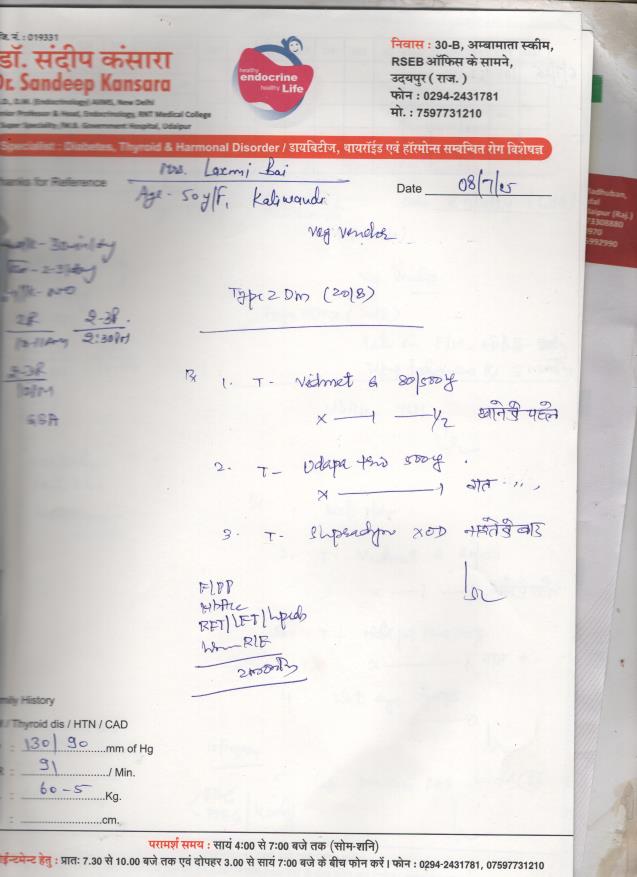 जि. नं. : 019331
डॉ. संदीप कंसारा
Dr. Sandeep Kansara
D., D.M. (Endocrinology) AIIMS, New Delhi
nior Professor & Head, Endocrinology, RNT Medical College
Super Speciality, M.B. Government Hospital, Udaipur
healthy
endocrine
healthy
Life
निवास : 30-B, अम्बामाता स्कीम,
RSEB ऑफिस के सामने,
उदयपुर ( राज. )
फोन : 0294-2431781
मो. : 7597731210
Specialist : Diabetes, Thyroid & Harmonal Disorder / डायबिटीज, थायरॉईड एवं हॉरमोन्स सम्बन्धित रोग विशेषज्ञ
Mrs. Laxmi Bai
hanks for Reference
Date 08/7/25
Age - 50y/F,
Veg vendor
Type 2 DM (2018)
Rx 1. T- Vidmet G 80/500
x — 1 — 1/2 खाने से पहले
2. T- Udapa trio 500
x — 1 रात
3. T- x OD नाश्ते के बाद
F/PP
HbA1c
RFT/LFT/Lipids
R/E
mily History
/ Thyroid dis / HTN / CAD
: 130/90 mm of Hg
: 91 / Min.
: 60-5 Kg.
: cm.
परामर्श समय : सायं 4:00 से 7:00 बजे तक (सोम-शनि)
ईन्टमेन्ट हेतु : प्रातः 7.30 से 10.00 बजे तक एवं दोपहर 3.00 से सायं 7:00 बजे के बीच फोन करें। फोन : 0294-2431781, 07597731210